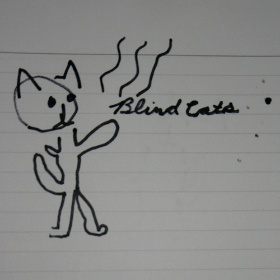 Blind Cats